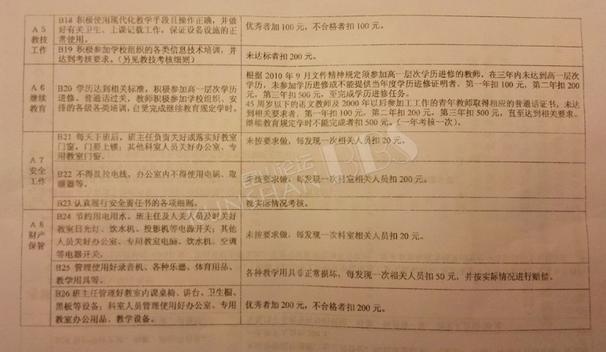 A5
教技
工作
B18 积极使用现代化教学手段且操作正确，并做
好有关卫生、上课记载工作，保证设备设施的正
常使用。
优秀者加 100 元，不合格者扣 100 元。
B19 积极参加学校组织的各类信息技术培训，并
达到考核要求。（另见教技考核细则）
未达标者扣 200 元。
A6
继续
教育
B20 学历达到相关标准，积极参加高一层次学历
进修。普通话过关，教师积极参加学校组织、安
排的各级各类培训，自觉完成继续教育规定学时。
根据 2010 年 9 月文件精神规定须参加高一层次学历进修的教师，在三年内未达到高一层次
学历，未参加学历进修或不能提供当年度学历进修证明者，第一年扣 100 元，第二年扣 200
元，第三年扣 500 元，至完成学历进修任务。
45 周岁以下的语文教师及 2000 年以后参加工作的青年教师取得相应的普通话证书，未达
到相关要求者，第一年扣 100 元，第二年扣 200 元，第三年扣 500 元，直至达到相关要求。
继续教育规定学时不能完成者扣 500 元。（一年考核一次）。
A7
安全
工作
B21 每天下班后，班主任负责关好或落实好教室
门窗，门要上锁；其他科室人员关好办公室、专
用教室门窗。
未按要求做，每发现一次相关人员扣 20 元。
B22 不得乱拉电线，办公室内不得使用电锅、取
暖器等。
未按要求做，每发现一次科室相关人员扣 200 元。
B23 认真履行安全责任书的各项细则。
视实际情况考核。
A8
财产
保管
B24 节约用电用水。班主任及人关人员及时关好
教室日光灯、饮水机、投影机等电源开关；其他
人员关好办公室、专用教室电脑、饮水机、空调
等电器开关。
未按要求做，每发现一次科室相关人员扣 20 元。
B25 管理使用好录音机、各种乐器、体育用品、
教学用具等。
各种教学用具非正常损坏，每发现一次相关人员扣 50 元，并按实际情况进行赔偿。
B26 班主任管理好教室内课桌椅、讲台、卫生橱、
黑板等设备；科室人员管理使用好办公室、专用
教室办公用品、教学设备。
优秀者加 200 元，不合格者扣 200 元。